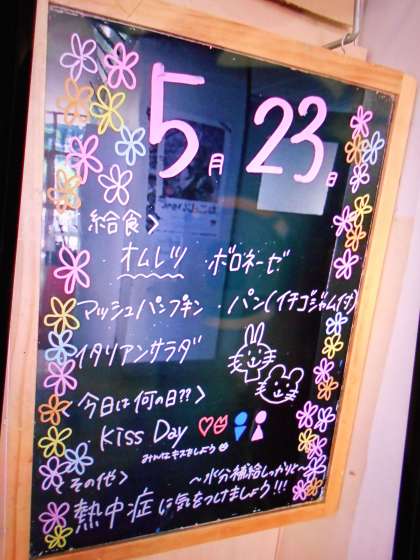 5月23日
給食>
オムレツ ボロネーゼ
マッシュパンプキン ・パン(イチゴジャム付)
イタリアンサラダ
<今日は何の日??>
Kiss Day
みんなキスをしよう
<その他> 〜水分補給しっかりと〜
熱中症に気をつけましょう!!!